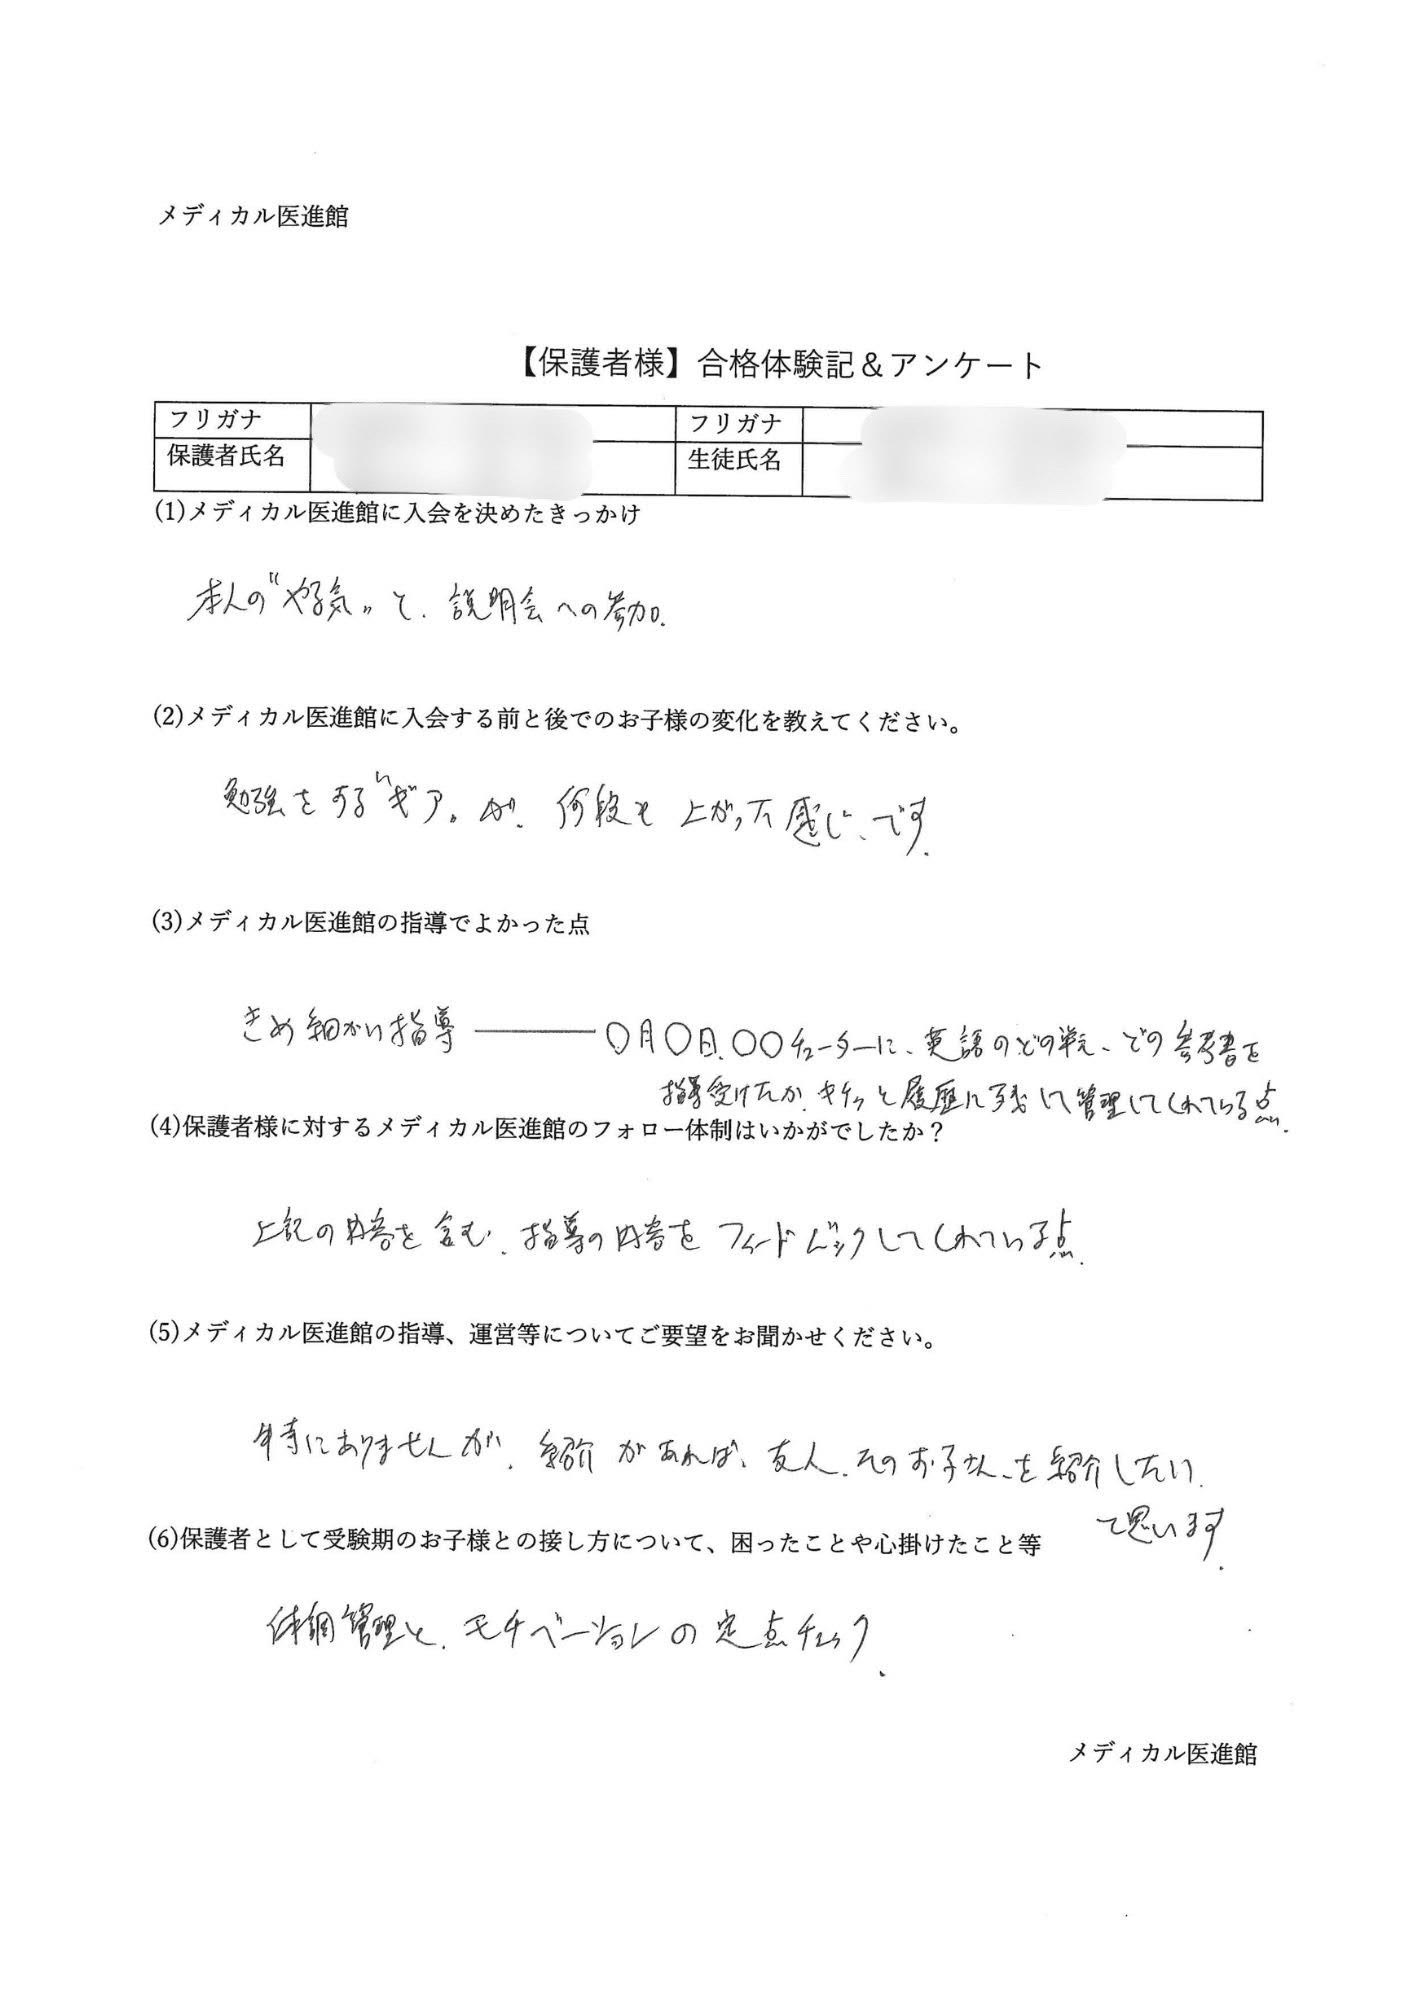 メディカル医進館
【保護者様】合格体験記＆アンケート
フリガナ
フリガナ
保護者氏名
生徒氏名
(1)メディカル医進館に入会を決めたきっかけ
本人の〝やる気〟と、説明会への参加。
(2)メディカル医進館に入会する前と後でのお子様の変化を教えてください。
勉強をする〝ギア〟が、何段も上がった感じ、です。
(3)メディカル医進館の指導でよかった点
きめ細かい指導 ―― ○月○日、○○チューターに、英語のどの単元、どの参考書を
指導受けたか、キチッと履歴に残して管理してくれている点。
(4)保護者様に対するメディカル医進館のフォロー体制はいかがでしたか？
上記の内容を含む、指導の内容をフィードバックしてくれている点。
(5)メディカル医進館の指導、運営等についてご要望をお聞かせください。
特にありませんが、紹介があれば、友人、そのお子さん、を紹介したい、
と思います。
(6)保護者として受験期のお子様との接し方について、困ったことや心掛けたこと等
体調管理と、モチベーションの定点チェック。
メディカル医進館